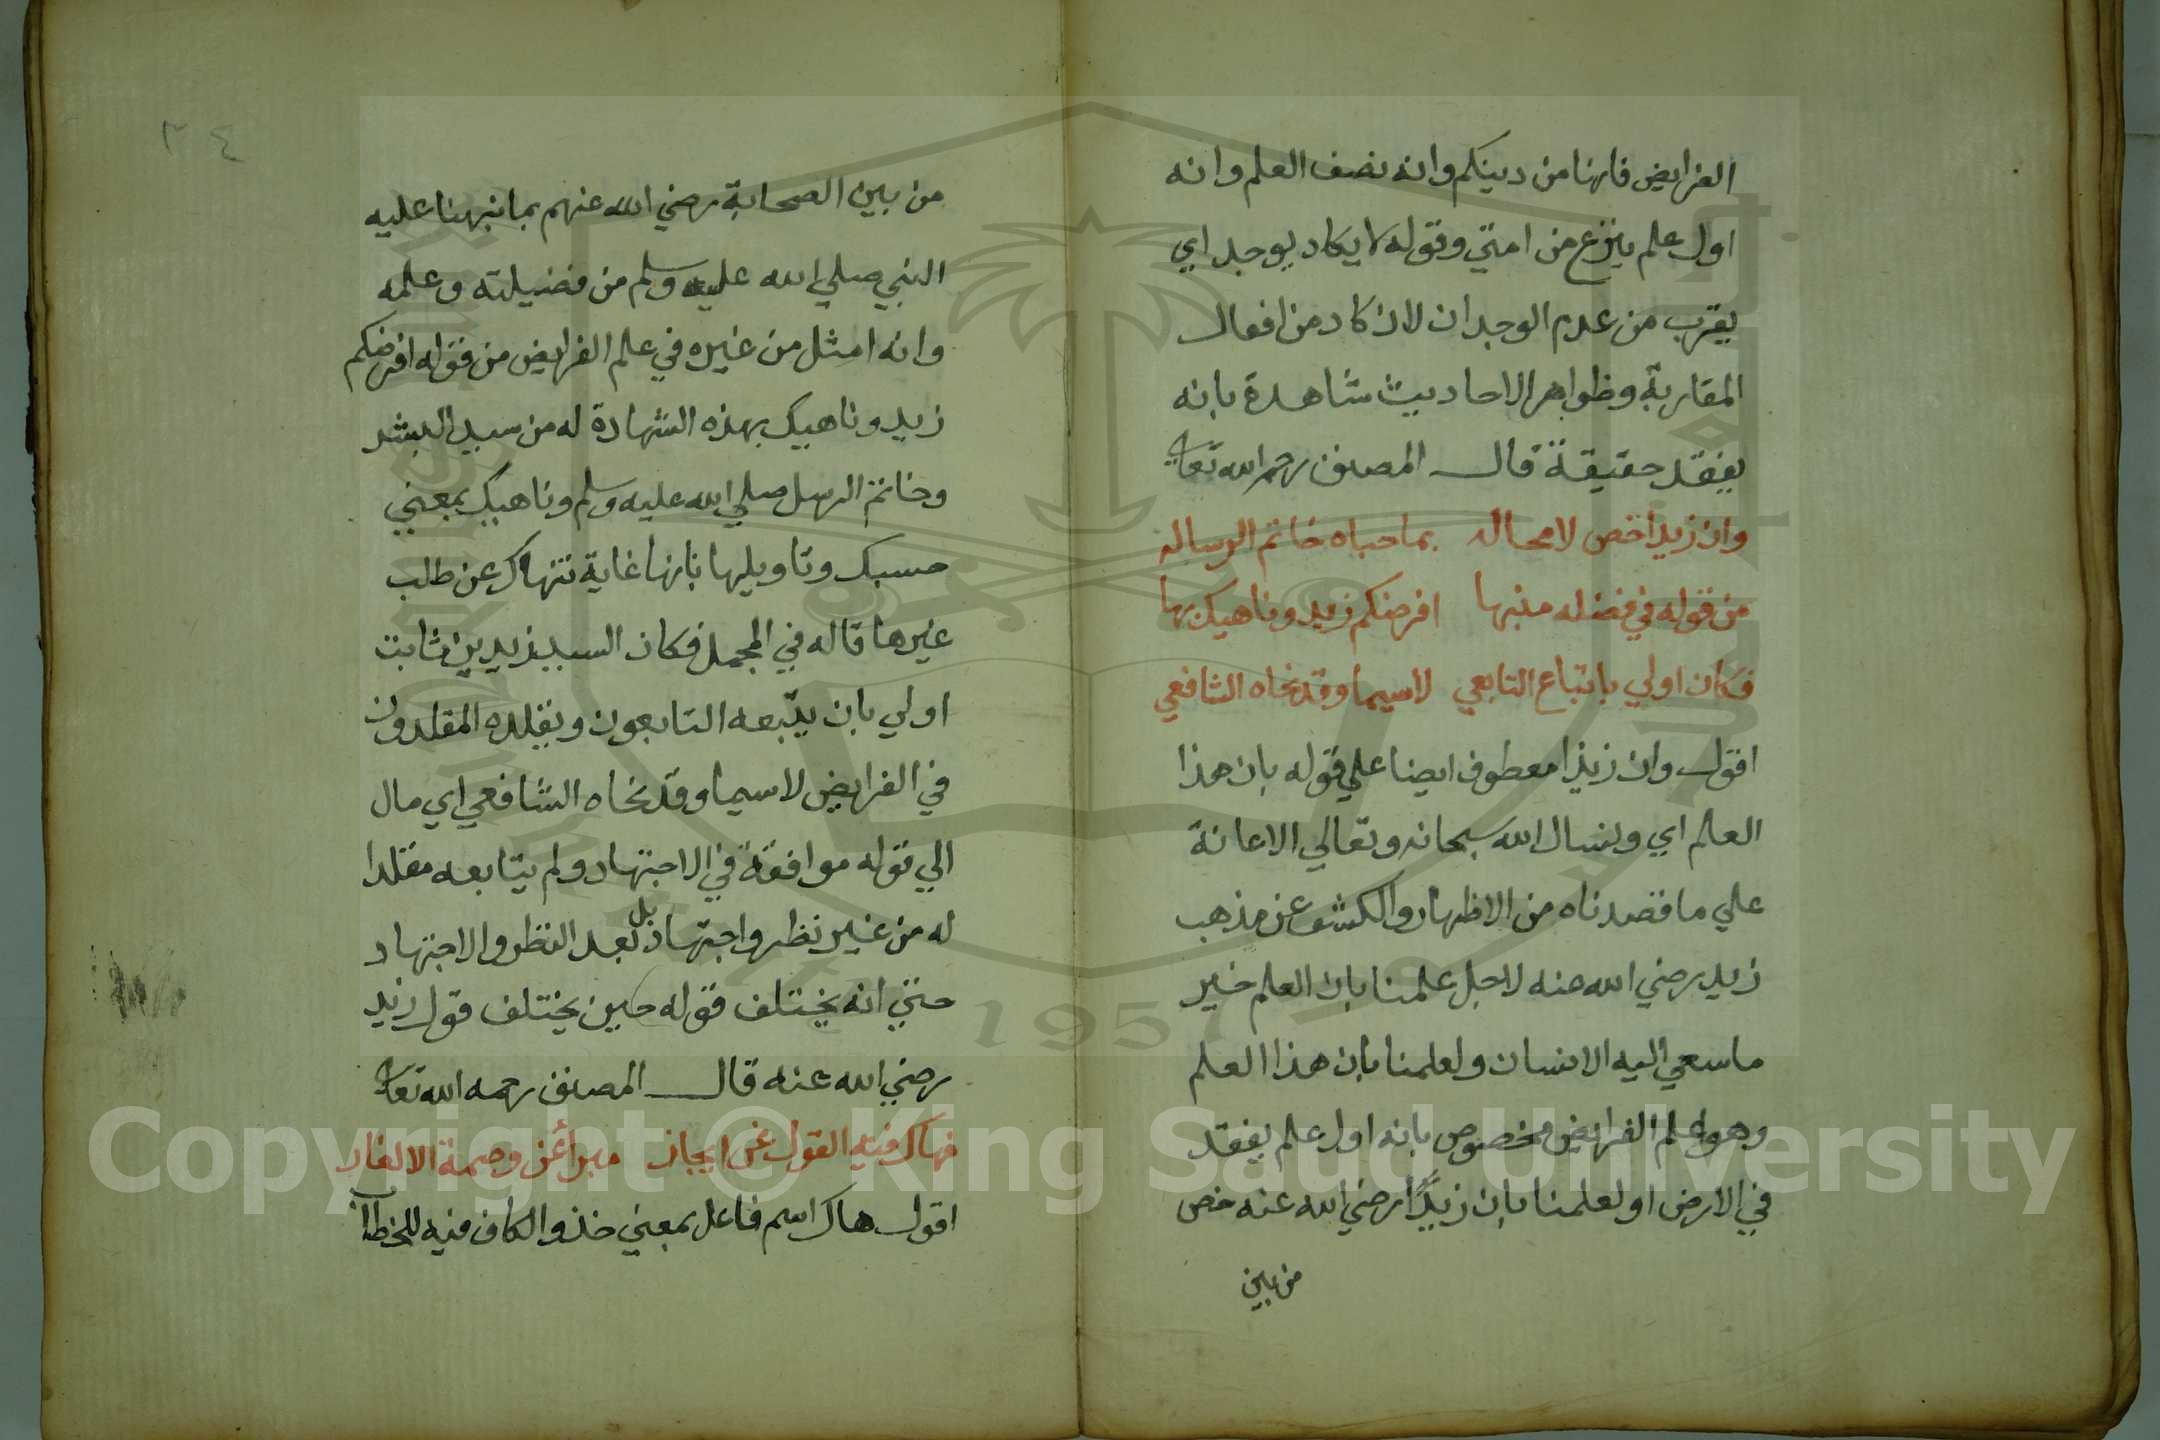 الفرايض فانها من دينكم وانه نصف العلم وانه
اول علم ينزع من امتي وقوله لا يكاد يوجد اي
يقرب من عدم الوجدان لان كاد من افعال
المقاربة وظواهر الاحاديث شاهدة بانه
يفقد حقيقة قال المصنف رحمه الله تعالى
وان زيدا خص لا محاله بما حباه خاتم الرساله
من قوله في فضله منبها افرضكم زيد وناهيك بها
فكان اولي باتباع التابعي لا سيما وقد نحاه الشافعي
اقول وان زيدا معطوف ايضا علي قوله بان هذا
العلم اي ونسال الله سبحانه وتعالي الاعانة
علي ما قصدناه من الاظهار والكشف عن مذهب
زيد رضي الله عنه لاجل علمنا بان العلم خير
ما سعي اليه الانسان ولعلمنا بان هذا العلم
وهو علم الفرايض مخصوص بانه اول علم يفقد
في الارض او لعلمنا بان زيدًا رضي الله عنه خص
من بين
٣٤
من بين الصحابة رضي الله عنهم بما نبهنا عليه
النبي صلي الله عليه وسلم من فضيلته وعلمه
وانه امثل من غيره في علم الفرايض من قوله افرضكم
زيد وناهيك بهذه الشهادة له من سيد البشر
وخاتم الرسل صلي الله عليه وسلم وناهيك بمعني
حسبك وتاويلها بانها غاية تنهاك عن طلب
غيرها قاله في المجمل فكان السيد زيد بن ثابت
اولي بان يتبعه التابعون ويقلده المقلدون
في الفرايض لا سيما وقد نحاه الشافعي اي مال
الي قوله موافقة في الاجتهاد ولم يتابعه مقلدا
له من غير نظر واجتهاد بل بعد النظر والاجتهاد
حتي انه يختلف قوله حين يختلف قول زيد
رضي الله عنه قال المصنف رحمه الله تعالى
فهاك فيه القول عن ايجاز مبرأ عن وصمة الالغاز
اقول هاك اسم فاعل بمعني خذ والكاف فيه للخطاب
1957
Copyright © King Saud University